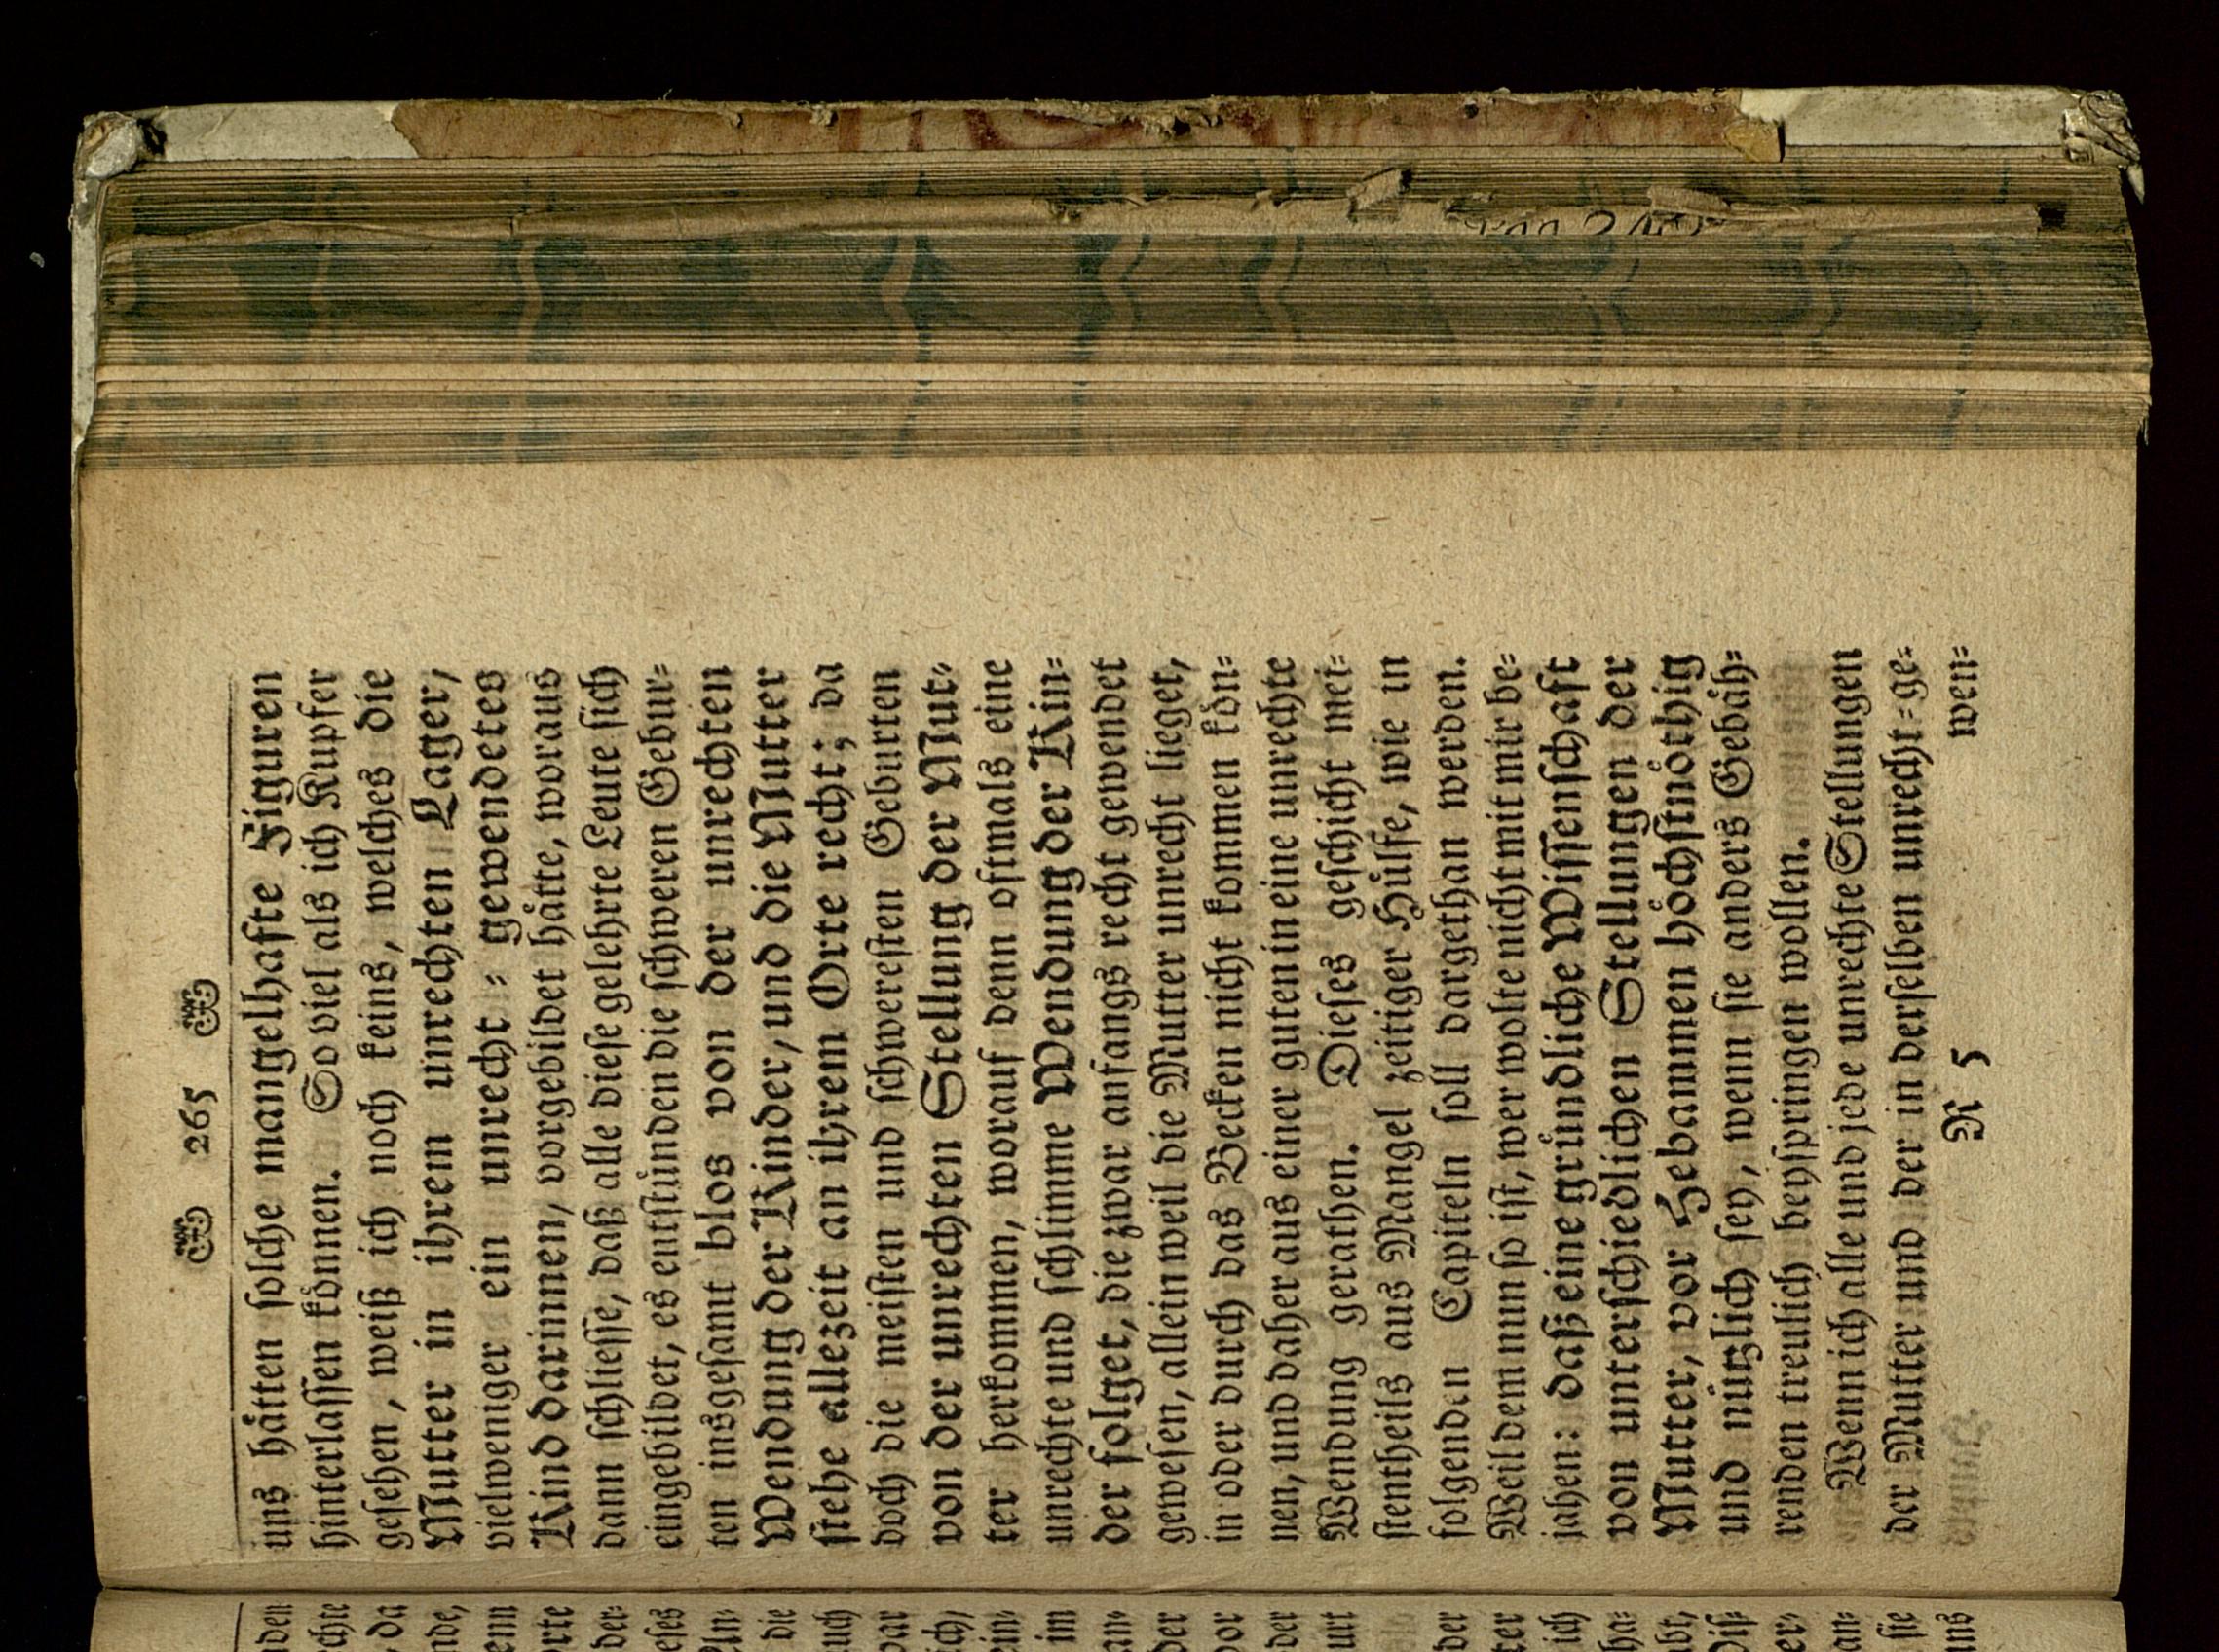 265
uns hätten solche mangelhafte Figuren
hinterlassen können. So viel als ich Kupfer
gesehen, weiß ich noch keins, welches die
Mutter in ihrem unrechten Lager,
vielweniger ein unrecht = gewendetes
Kind darinnen, vorgebildet hätte, woraus
dann schliesse, daß alle diese gelehrte Leute sich
eingebildet, es entstünden die schweren Gebur=
ten insgesamt blos von der unrechten
Wendung der Kinder, und die Mutter
stehe allezeit an ihrem Orte recht; da
doch die meisten und schweresten Geburten
von der unrechten Stellung der Mut=
ter herkommen, worauf denn oftmals eine
unrechte und schlimme Wendung der Kin=
der folget, die zwar anfangs recht gewendet
gewesen, allein weil die Mutter unrecht lieget,
in oder durch das Becken nicht kommen kön=
nen, und daher aus einer guten in eine unrechte
Wendung gerathen. Dieses geschicht mei=
stentheils aus Mangel zeitiger Hülfe, wie in
folgenden Capiteln soll dargethan werden.
Weil dem nun so ist, wer wolte nicht mit mir be=
jahen: daß eine gründliche Wissenschaft
von unterschiedlichen Stellungen der
Mutter, vor Hebammen höchstnöthig
und nützlich sey, wenn sie anders Gebäh=
renden treulich beyspringen wollen.
Wenn ich alle und jede unrechte Stellungen
der Mutter und der in derselben unrecht=ge=
R 5 wen=